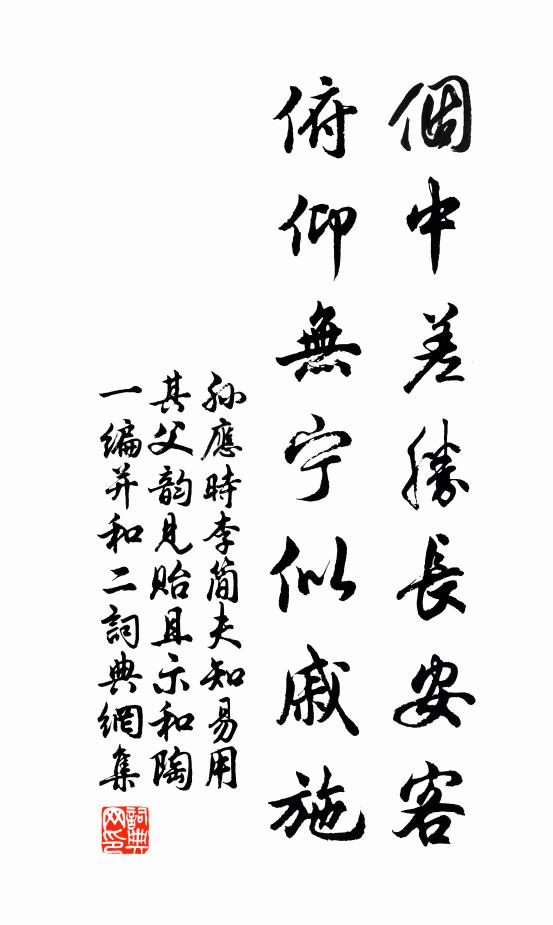 個中差勝長安客
俯仰無宁似戚施
孙應時李簡夫知易用
其父韵見贻且示和陶
一编并和二詞典網集
詞典网印